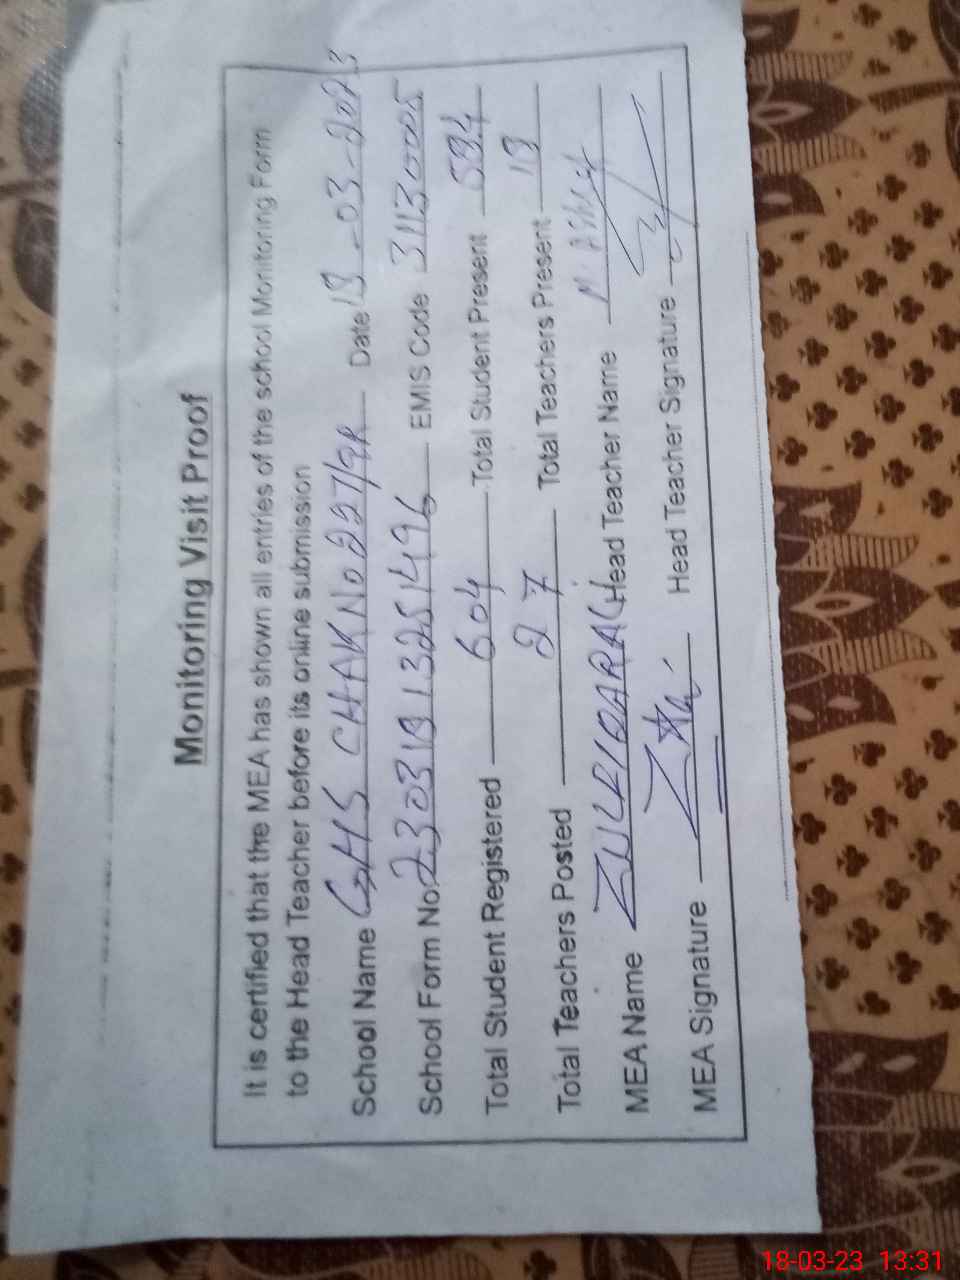 Monitoring Visit Proof
It is certified that the MEA has shown all entries of the school Monitoring Form
to the Head Teacher before its online submission
School Name GHS CHAK No 227/9R Date 18-03-2023
School Form No. 230318 13251496 EMIS Code 31130005
Total Student Registered 604 Total Student Present 584
Total Teachers Posted 27 Total Teachers Present 18
MEA Name ZULFIQAR ALI Head Teacher Name M. Ashraf
MEA Signature Head Teacher Signature
18-03-23 13:31